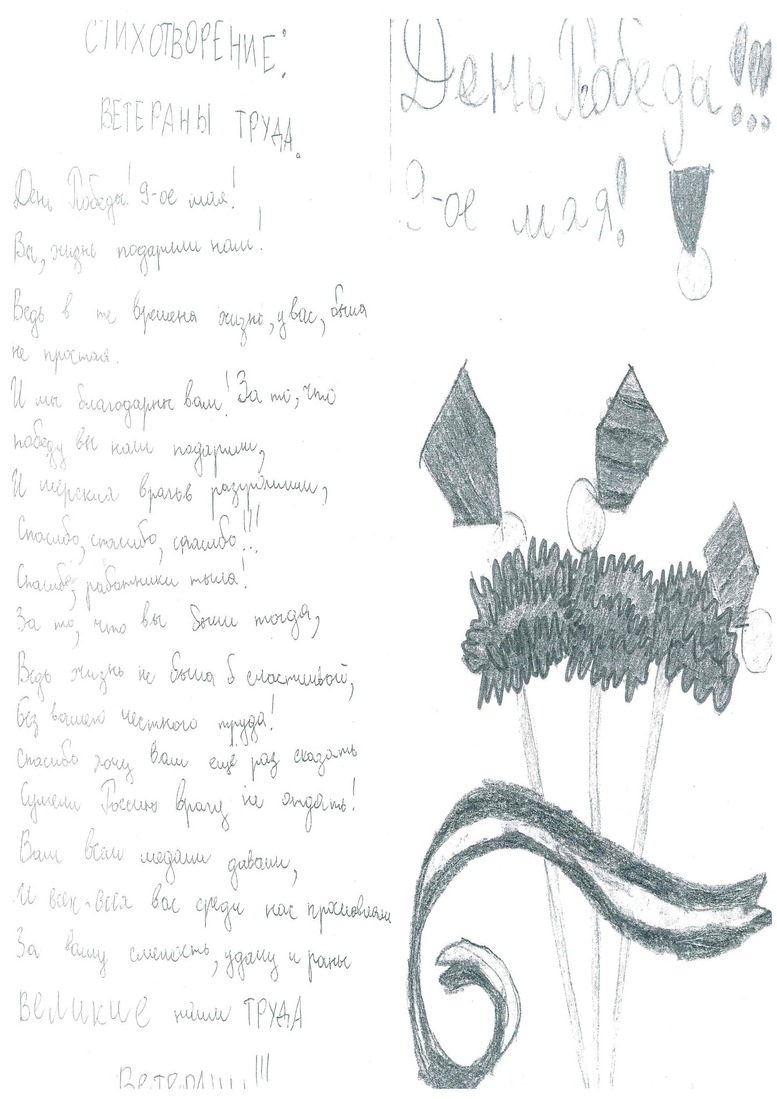 СТИХОТВОРЕНИЕ:
ВЕТЕРАНЫ ТРУДА.
День Победы! 9-ое мая!
Вы, жизнь подарили нам!
Ведь в те времена жизнь, у вас, была
не простая.
И мы благодарны вам! За то, что
победу вы нам подарили,
И мерских врагов разгромили,
Спасибо, спасибо, спасибо!!!
Спасибо, работники тыла!
За то, что вы были тогда,
Ведь жизнь не была б счастливой,
без вашего честного труда!
Спасибо хочу Вам ещё раз сказать
Сумели Россию врагу не отдать!
Вам всем медали давали,
И всех-всех вас среди нас прославляли
За вашу смелость, удачу и раны
Великие наши ТРУДА
ВЕТЕРАНЫ!!!
День Победы!!!
9-ое мая!